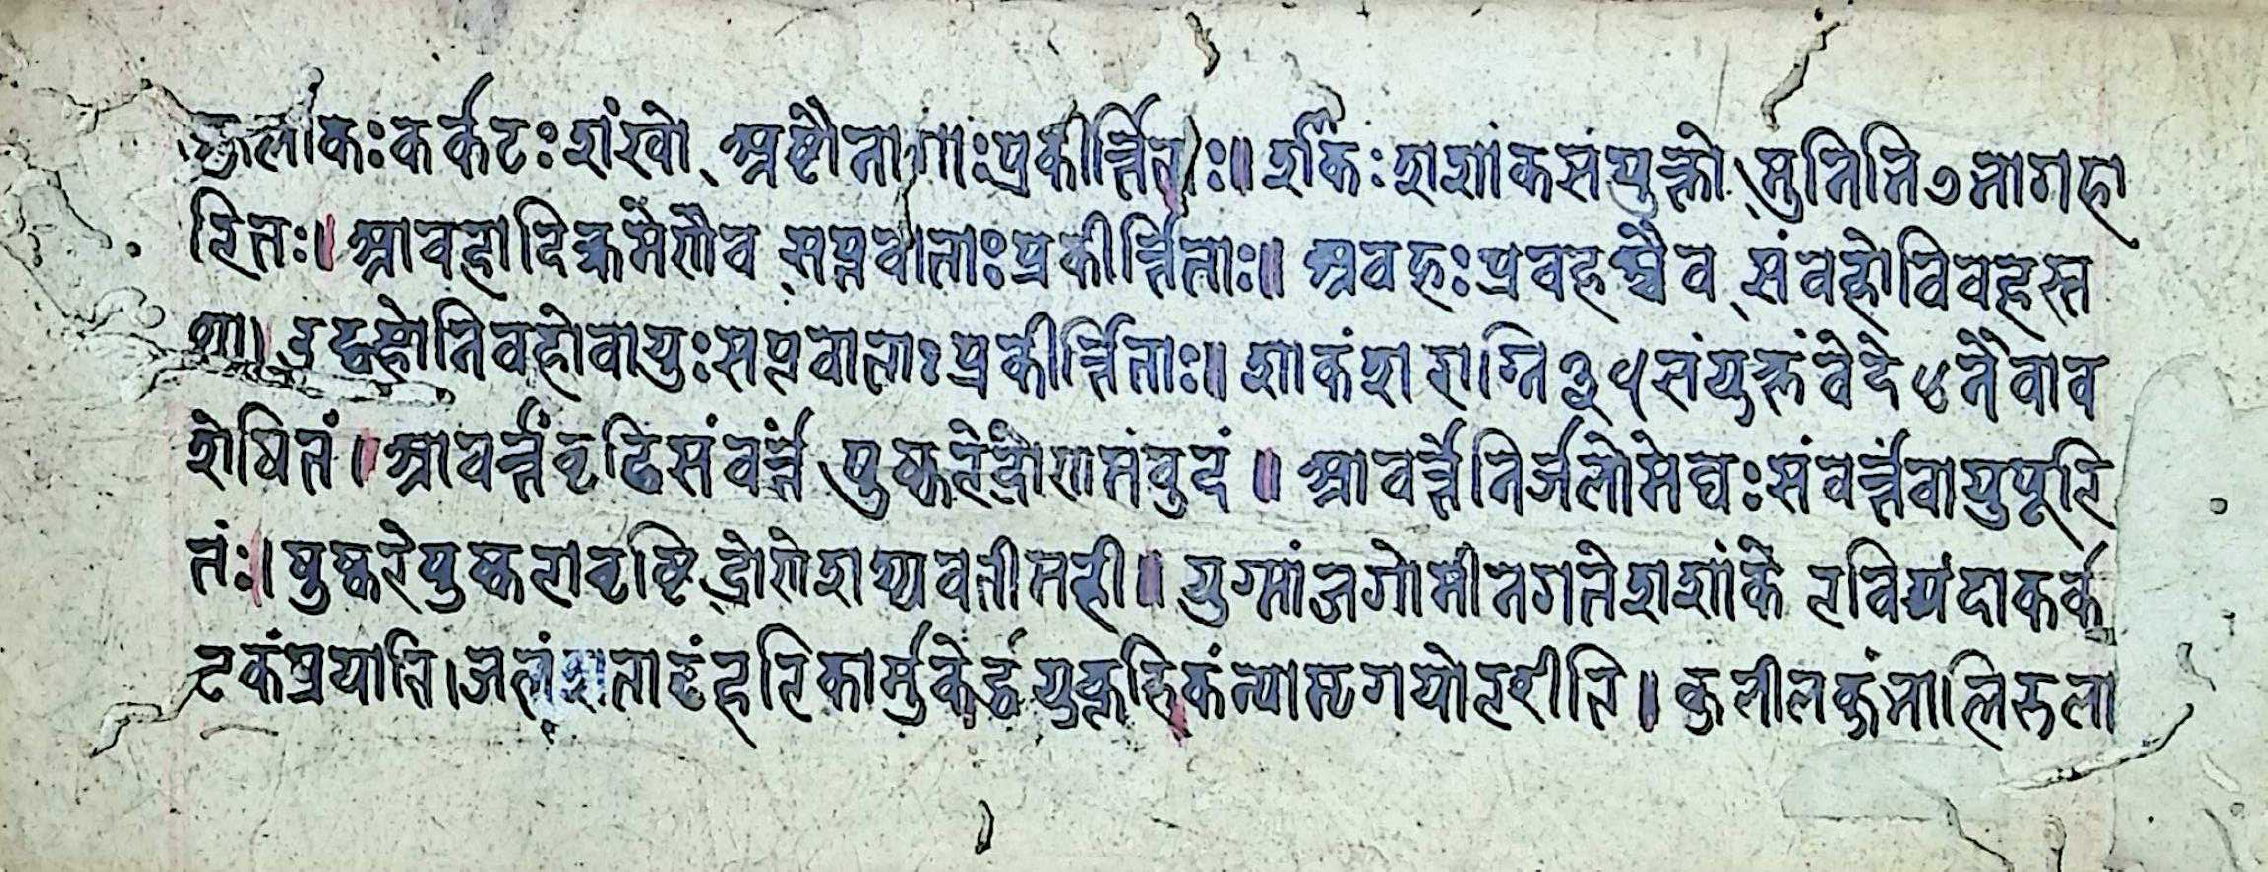 कुलीकः कर्कटः शंखो अष्टौ नागाः प्रकीर्त्तिताः॥ शकिः शशांकसंयुक्तो मुनिनि ७ र्भागहा
रितः। आवहादिक्रमेणैव सप्तवाताः प्रकीर्त्तिताः॥ अवहः प्रवहश्चैव संवहो विवहस्त
था। उद्वहो तिवहो वायुः सप्तवाताः प्रकीर्त्तिताः॥ शाकं शराग्नि ३५ संयुक्तं वेदे ४ नैवाव
शेषितं। आवर्त्तं वृद्धि संवर्त्तं पुष्करे द्रोणमंवुदं॥ आवर्त्ते निर्जलो मेघः संवर्त्तं वायुपूरि
तंः। पुष्करे पुष्करा वृष्टि द्रोणे शस्यवती मही॥ युग्मांजगोमीनगते शशांके रविर्यदा कर्क
टकं प्रयाति। जलं शताढं हरिकार्मुकेर्द्ध युक्तं हि कंन्यामृगयोरशीति॥ कुलीलकुंभालितुला